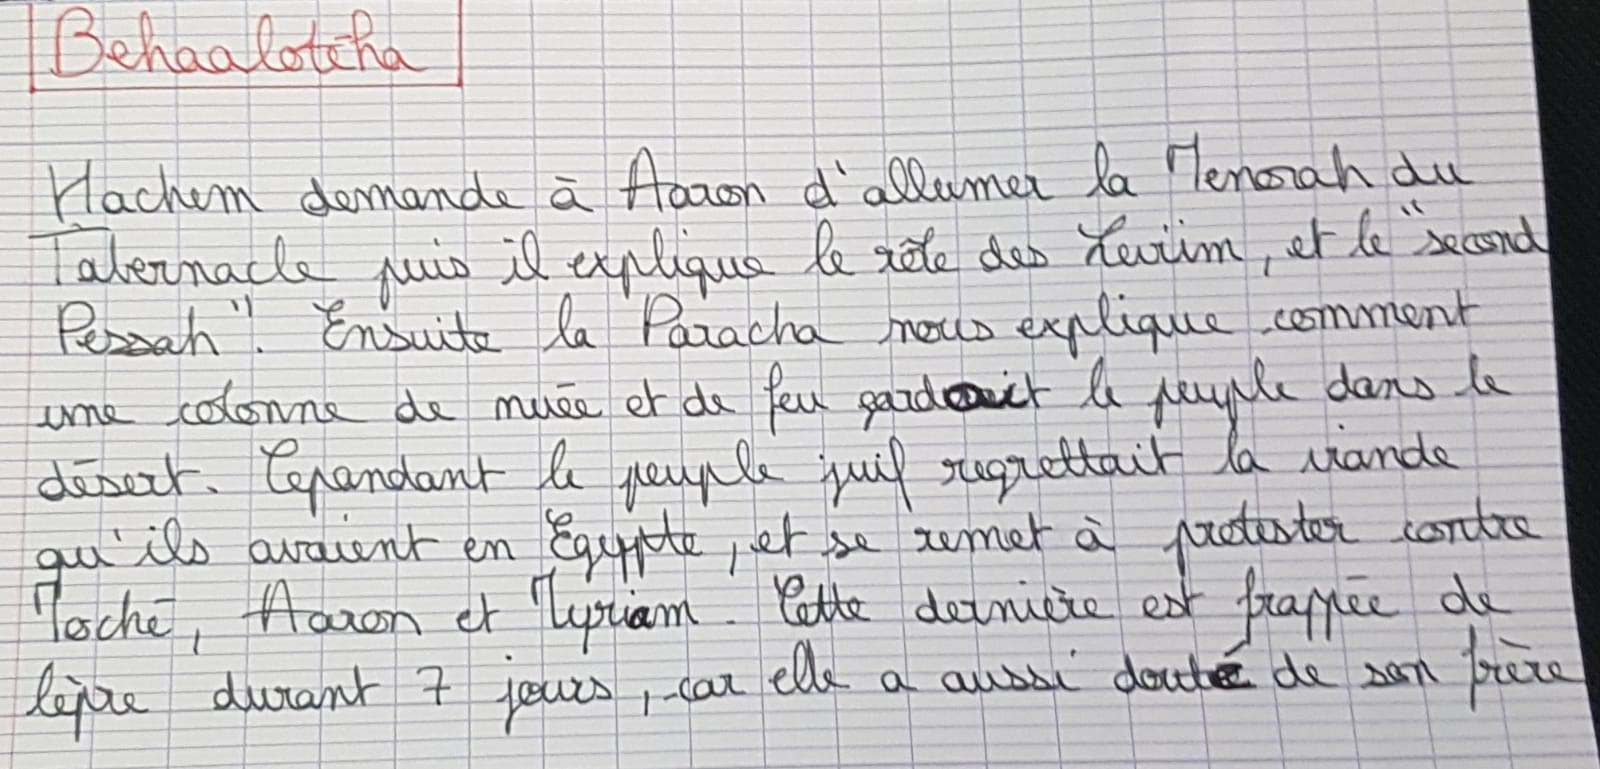 Behaalotcha
Hachem demande à Aaron d'allumer la Menorah du
Tabernacle puis il explique le rôle des Leviim, et le "second
Pessah". Ensuite la Paracha nous explique comment
une colonne de nuée et de feu gardait le peuple dans le
désert. Cependant le peuple juif regrettait la viande
qu'ils avaient en Egypte, et se remet à protester contre
Moché, Aaron et Myriam. Cette dernière est frappée de
lèpre durant 7 jours, car elle a aussi douté de son frère